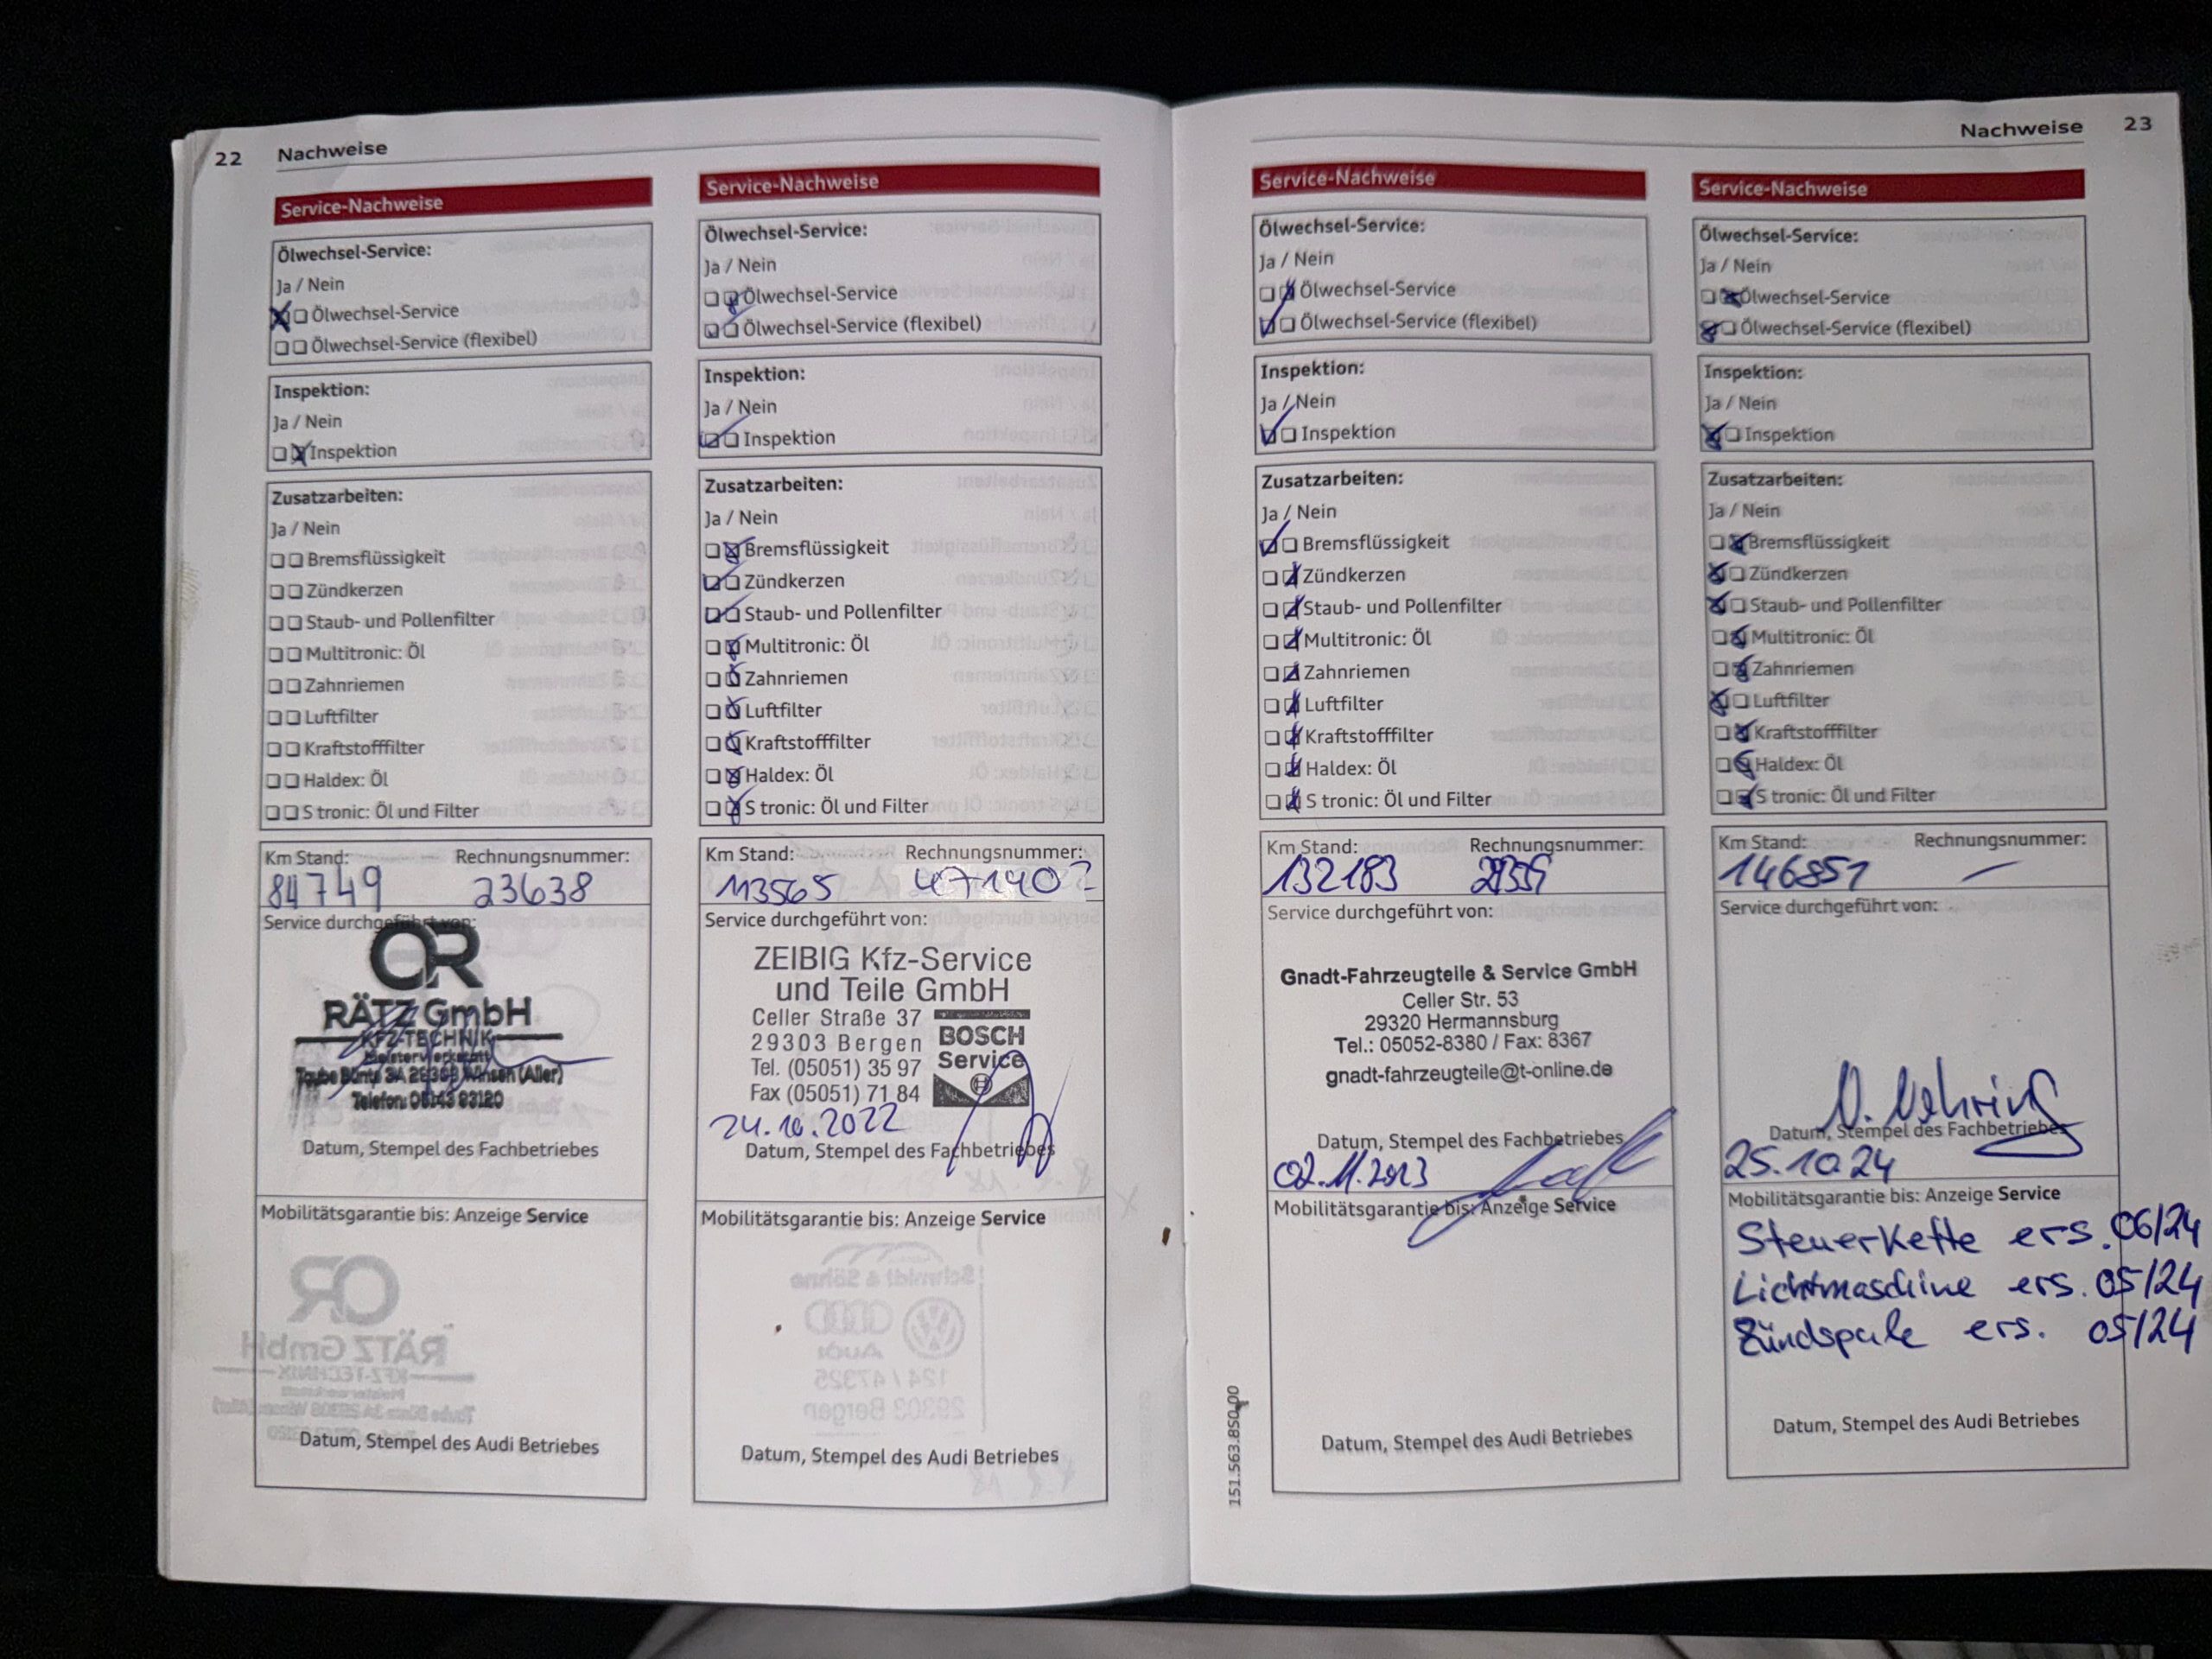 22 Nachweise
Service-Nachweise
Ölwechsel-Service:
Ja / Nein
Ölwechsel-Service
Ölwechsel-Service (flexibel)
Inspektion:
Ja / Nein
Inspektion
Zusatzarbeiten:
Ja / Nein
Bremsflüssigkeit
Zündkerzen
Staub- und Pollenfilter
Multitronic: Öl
Zahnriemen
Luftfilter
Kraftstofffilter
Haldex: Öl
S tronic: Öl und Filter
Km Stand: Rechnungsnummer:
84749 23638
Service durchgeführt von:
RÄTZ GmbH
KFZ-TECHNIK
Meisterwerkstatt
Taube Bünte 3A 29308 Winsen (Aller)
Telefon: 05143 93120
Datum, Stempel des Fachbetriebes
Mobilitätsgarantie bis: Anzeige Service
Datum, Stempel des Audi Betriebes
Service-Nachweise
Ölwechsel-Service:
Ja / Nein
Ölwechsel-Service
Ölwechsel-Service (flexibel)
Inspektion:
Ja / Nein
Inspektion
Zusatzarbeiten:
Ja / Nein
Bremsflüssigkeit
Zündkerzen
Staub- und Pollenfilter
Multitronic: Öl
Zahnriemen
Luftfilter
Kraftstofffilter
Haldex: Öl
S tronic: Öl und Filter
Km Stand: Rechnungsnummer:
113565 471402
Service durchgeführt von:
ZEIBIG Kfz-Service
und Teile GmbH
Celler Straße 37
29303 Bergen BOSCH
Tel. (05051) 35 97 Service
Fax (05051) 71 84
24.10.2022
Datum, Stempel des Fachbetriebes
Mobilitätsgarantie bis: Anzeige Service
Datum, Stempel des Audi Betriebes
Nachweise 23
Service-Nachweise
Ölwechsel-Service:
Ja / Nein
Ölwechsel-Service
Ölwechsel-Service (flexibel)
Inspektion:
Ja / Nein
Inspektion
Zusatzarbeiten:
Ja / Nein
Bremsflüssigkeit
Zündkerzen
Staub- und Pollenfilter
Multitronic: Öl
Zahnriemen
Luftfilter
Kraftstofffilter
Haldex: Öl
S tronic: Öl und Filter
Km Stand: Rechnungsnummer:
132183
Service durchgeführt von:
Gnadt-Fahrzeugteile & Service GmbH
Celler Str. 53
29320 Hermannsburg
Tel.: 05052-8380 / Fax: 8367
gnadt-fahrzeugteile@t-online.de
Datum, Stempel des Fachbetriebes
02.11.2023
Mobilitätsgarantie bis: Anzeige Service
Datum, Stempel des Audi Betriebes
151.563.850.00
Service-Nachweise
Ölwechsel-Service:
Ja / Nein
Ölwechsel-Service
Ölwechsel-Service (flexibel)
Inspektion:
Ja / Nein
Inspektion
Zusatzarbeiten:
Ja / Nein
Bremsflüssigkeit
Zündkerzen
Staub- und Pollenfilter
Multitronic: Öl
Zahnriemen
Luftfilter
Kraftstofffilter
Haldex: Öl
S tronic: Öl und Filter
Km Stand: Rechnungsnummer:
146851 –
Service durchgeführt von:
Datum, Stempel des Fachbetriebes
25.10.24
Mobilitätsgarantie bis: Anzeige Service
Steuerkette ers. 06/24
Lichtmaschine ers. 05/24
Zündspule ers. 05/24
Datum, Stempel des Audi Betriebes